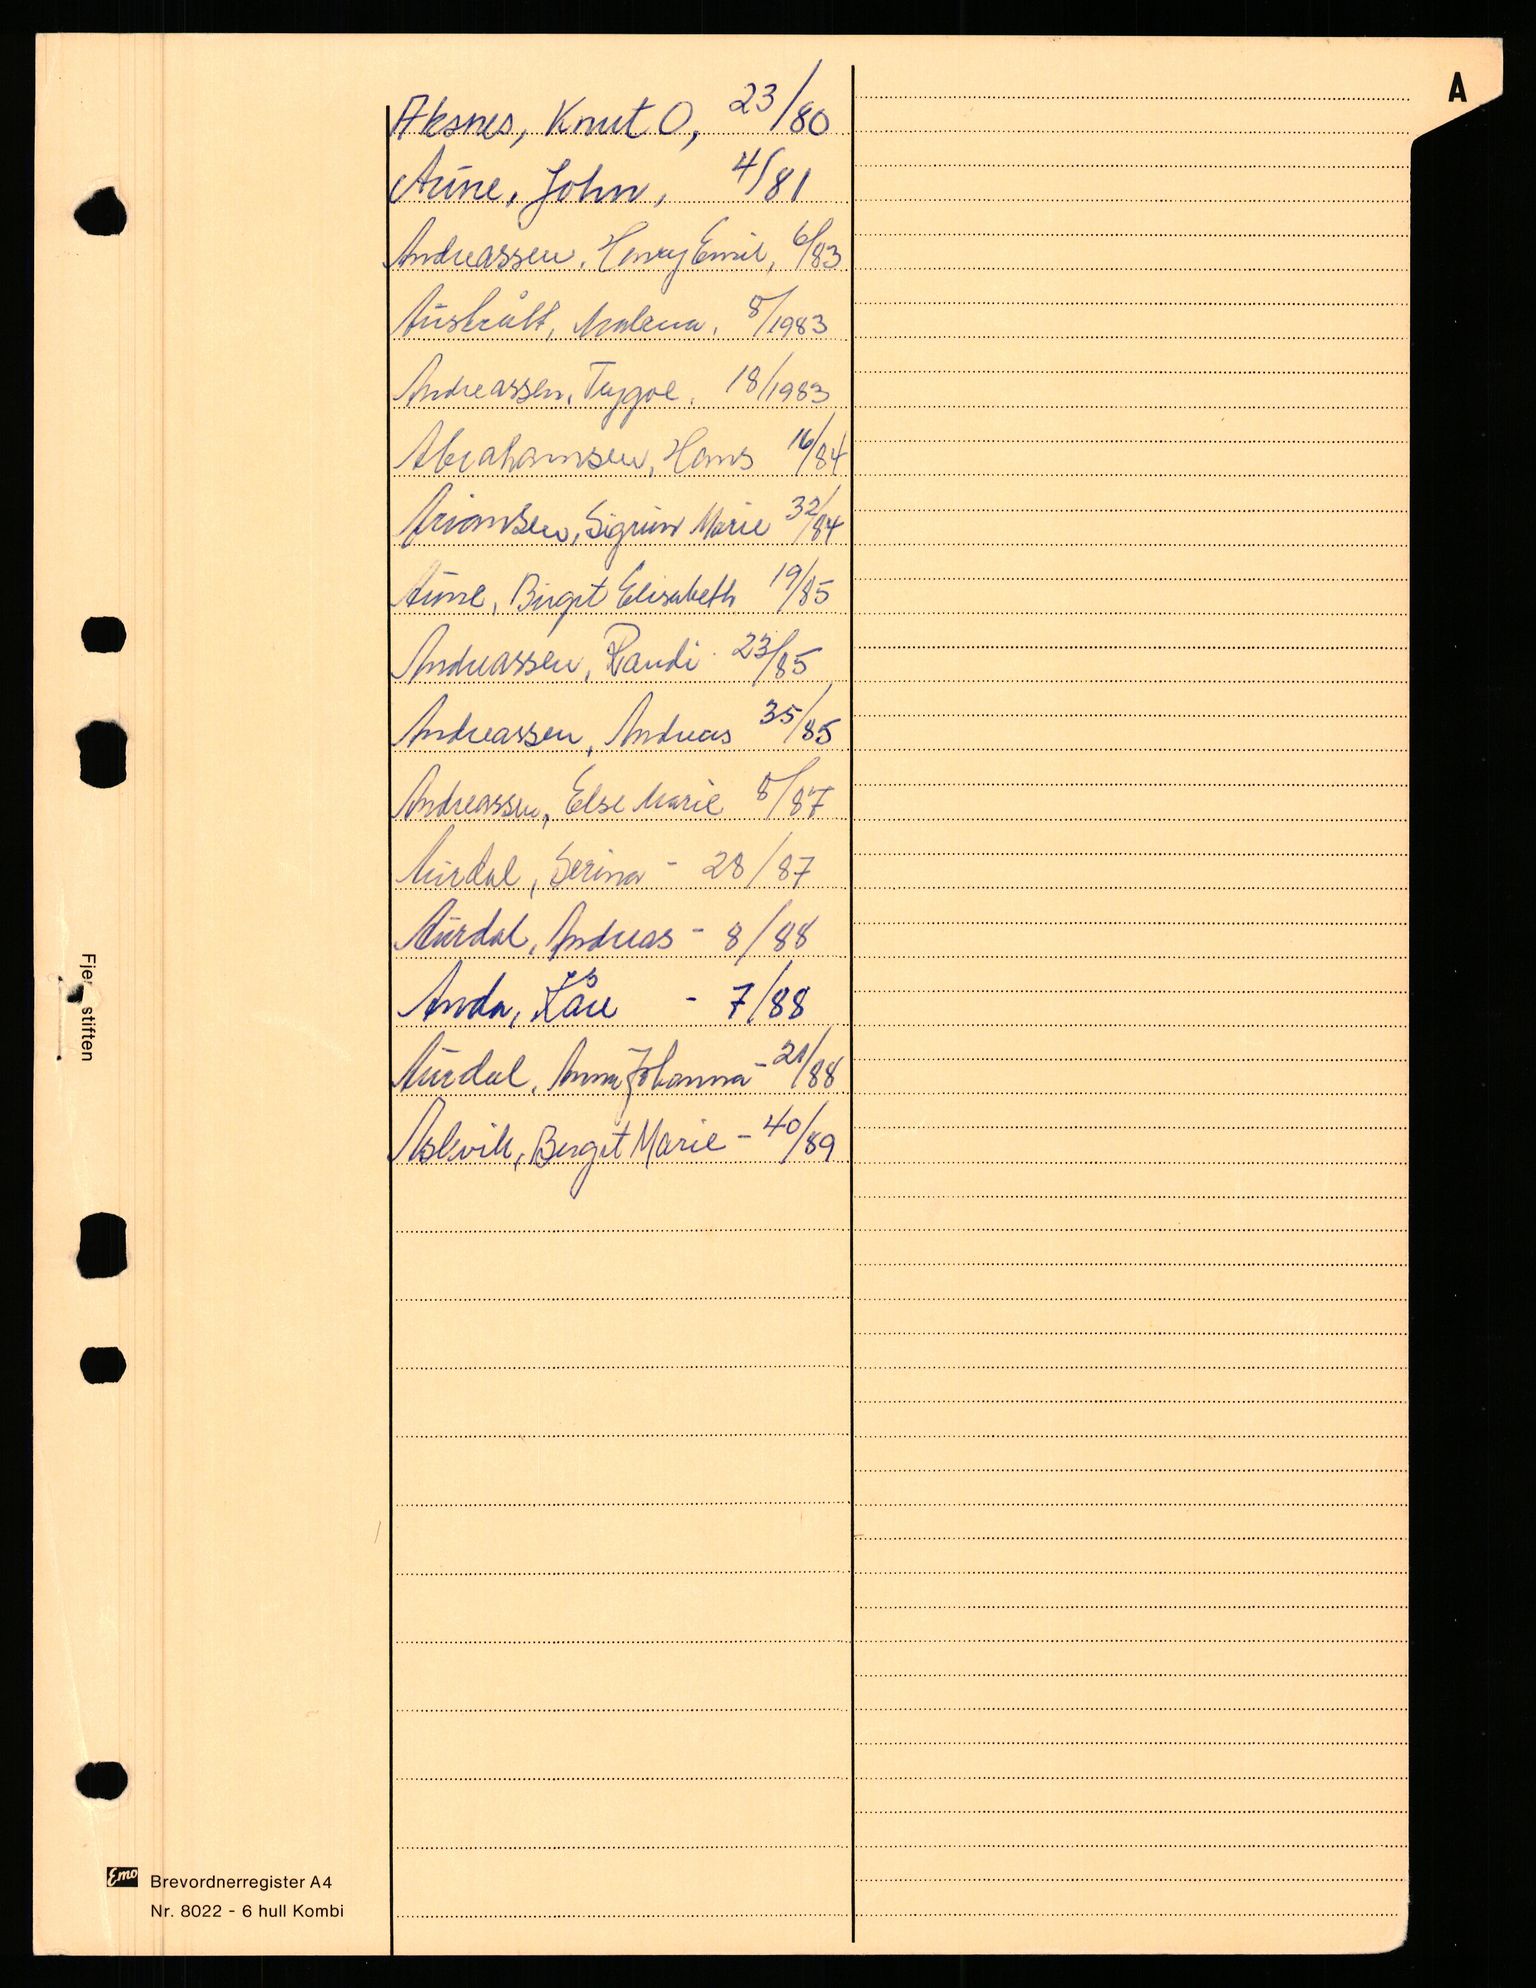 A
Aksnes, Knut O, 23/80
Aune, John, 4/81
Andreassen, Henry Emil, 6/83
Auskålt, Malena, 8/1983
Andreassen, Trygve. 18/1983
Abrahamsen, Hans 16/84
Ariansen, Sigrun Marie 32/84
Aune, Birgit Elisabeth 19/85
Andreassen, Randi 23/85
Andreassen, Andreas 35/85
Andreassen, Else Marie 8/87
Aurdal, Serina - 28/87
Aurdal, Andreas - 8/88
Anda, Kåre - 7/88
Aurdal, Anna Johanna - 21/88
Aslevik, Bergit Marie - 40/89
Fjer stiften
Emo Brevordnerregister A4
Nr. 8022 - 6 hull Kombi